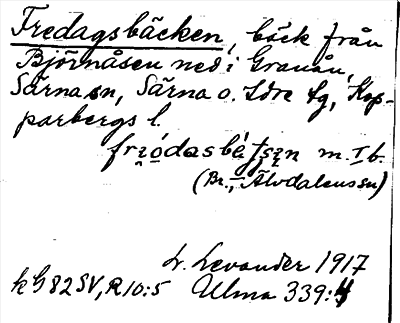 Fredagsbäcken, bäck från
Björnåsen ned i Granån,
Särna sn, Särna o. Idre tg, Kop-
parbergs l.
m. I b.
(Br., Älvdalens sn)
L. Levander 1917
k G 82 SV, R 10:5 Ulma 339:4